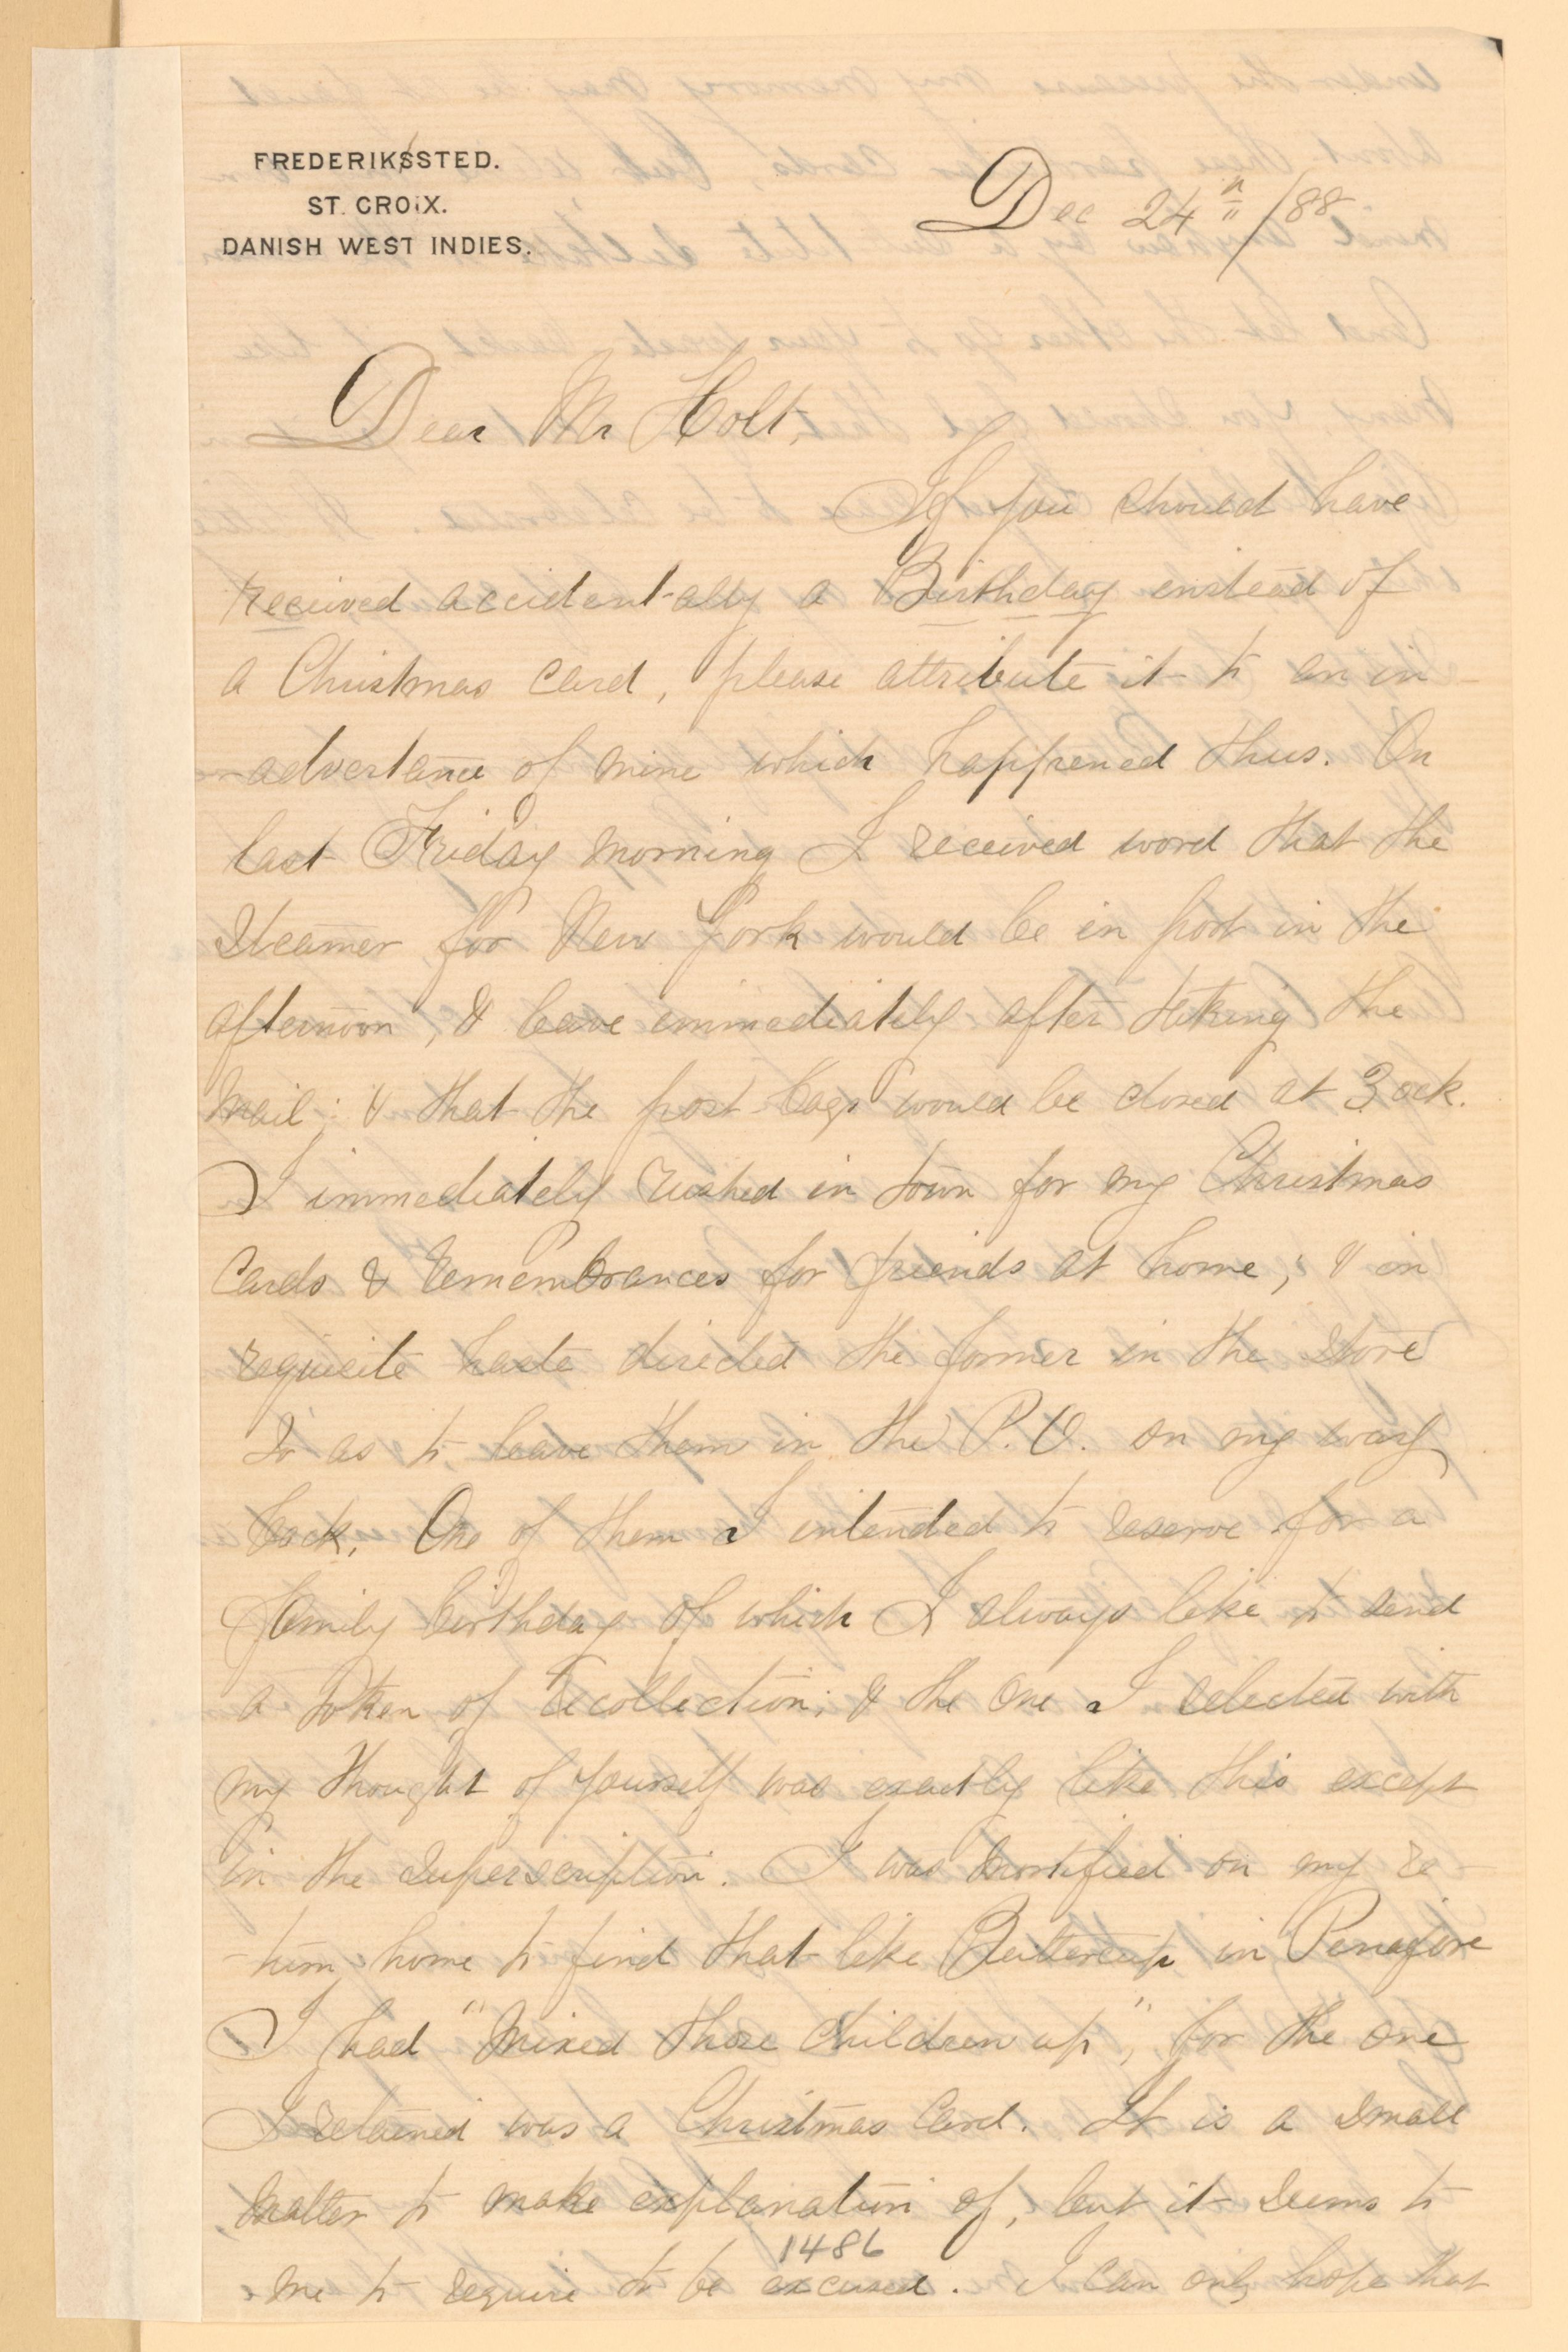 FREDERIKSSTED.
ST. CROIX.
DANISH WEST INDIES.
Dec 24th /88
Dear Mr Holt,
If you should have
received accidentally a Birthday instead of
a Christmas card, please attribute it to an in-
-advertance of mine which happened thus. On
last Friday morning I received word that the
Steamer for New York would be in port in the
afternoon, & leave immediately after taking the
mail; & that the post bags would be closed at 3 ock.
I immediately rushed in town for my Christmas
Cards & remembrances for friends at home; & in
requisite haste directed the former in the store
so as to leave them in the P.O. on my way
back. One of them I intended to reserve for a
family birthday of which I always like to send
a token of recollection; & the one I selected with
my thought of yourself was exactly like this except
in the superscription. I was mortified on my re-
-turn home to find that like Buttercup in Penafore
I had "mixed those children up", for the one
I retained was a Christmas Card. It is a small
matter to make explanation of, but it seems to
me to require to be excused. I can only hope that
1486